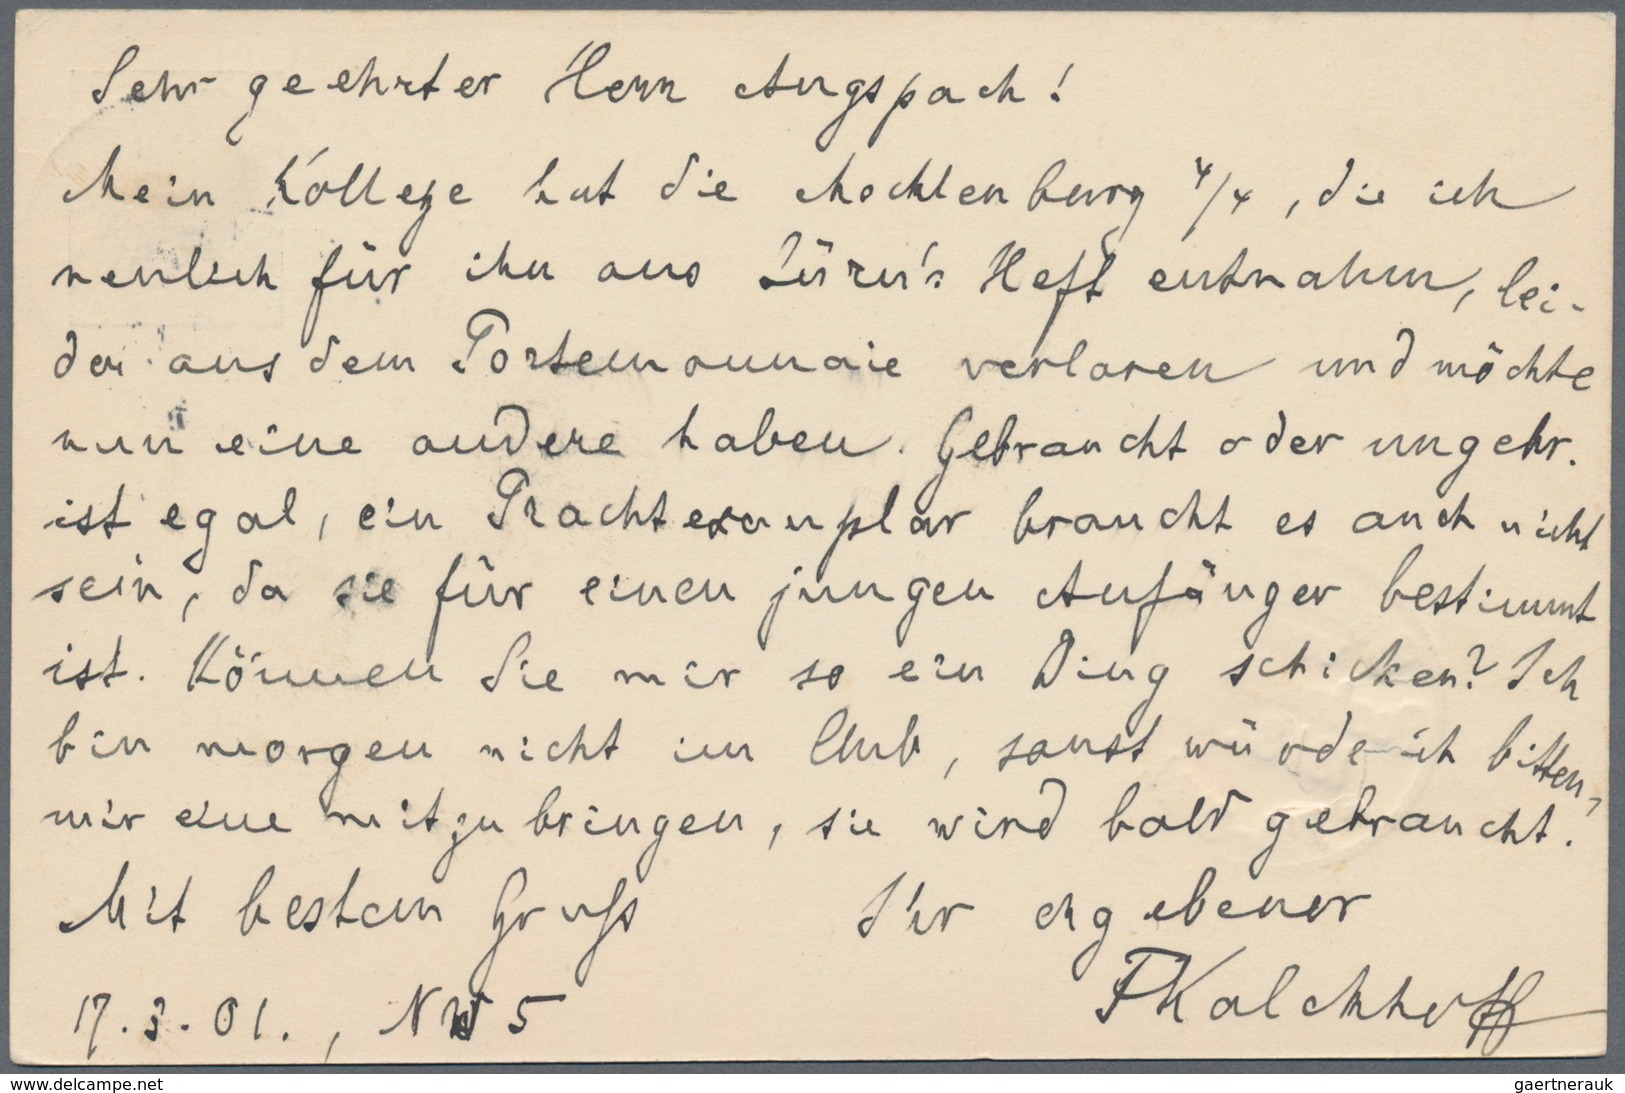 Sehr geehrter Herr Angspach!
Mein Kollege hat die Mecklenburg 4/4, die ich
neulich für ihn aus Zürn's Heft entnahm, lei-
der aus dem Portemonnaie verloren und möchte
nun eine andere haben. Gebraucht oder ungebr.
ist egal, ein Prachtexemplar braucht es auch nicht
sein, da sie für einen jungen Anfänger bestimmt
ist. Können Sie mir so ein Ding schicken? Ich
bin morgen nicht im Club, sonst würde ich bitten,
mir eine mitzubringen, sie wird bald gebraucht!
Mit bestem Gruss Ihr ergebener
17.3.01., NW 5 FKalckhoff
www.delcampe.net
gaertnerauk